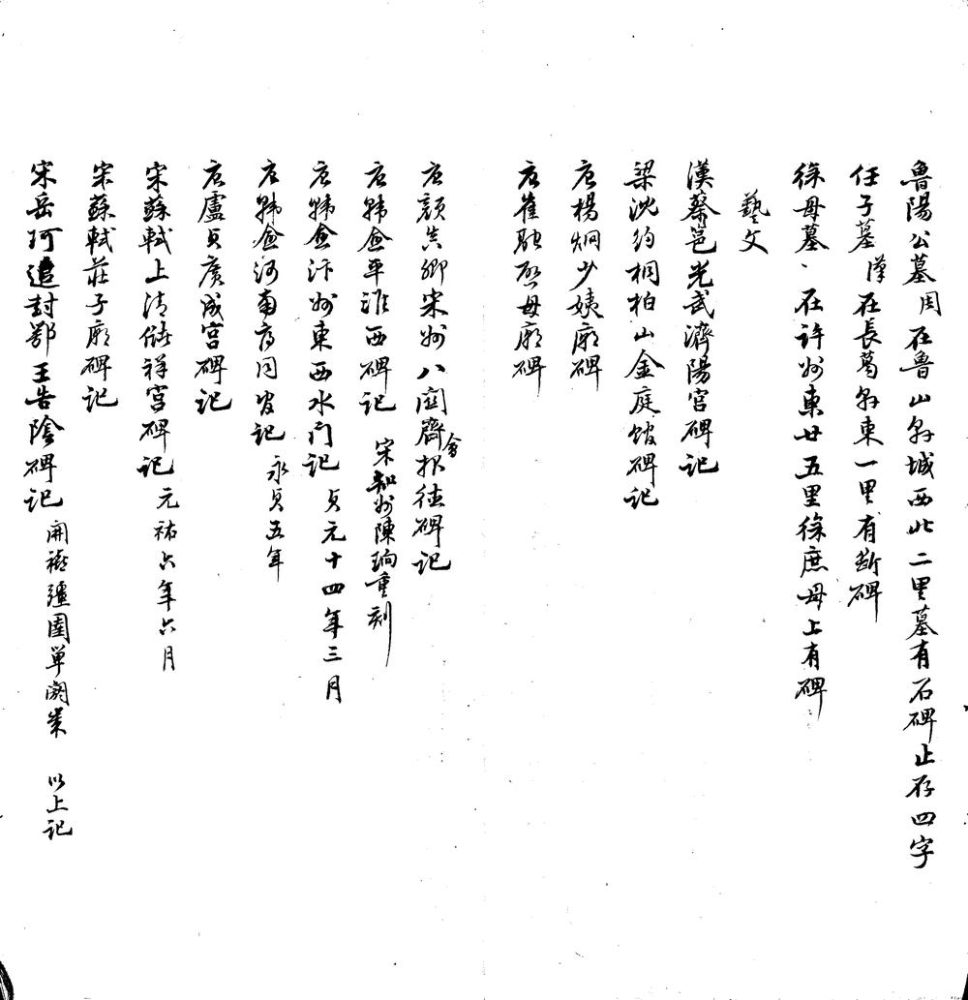 魯陽公墓周在魯山縣城西北二里墓有石碑止存四字
任子墓漢在長葛縣東一里有斷碑
徐母墓、在許州東廿五里徐庶母上有碑
藝文
漢蔡邕光武濟陽宮碑記
梁沈約桐柏山金庭館碑記
唐楊炯少姨廟碑
唐崔融啟母廟碑
唐顏真卿宋州八關齋會報德碑記
唐韓愈平淮西碑記 宋知州陳珦重刻
唐韓愈汴州東西水門記 貞元十四年三月
唐韓愈河南府同官記 永貞五年
唐盧貞廣成宮碑記
宋蘇軾上清儲祥宮碑記 元祐六年六月
宋蘇軾莊子廟碑記
宋岳珂追封鄂王告陰碑記 開禧彊圉單閼 以上記